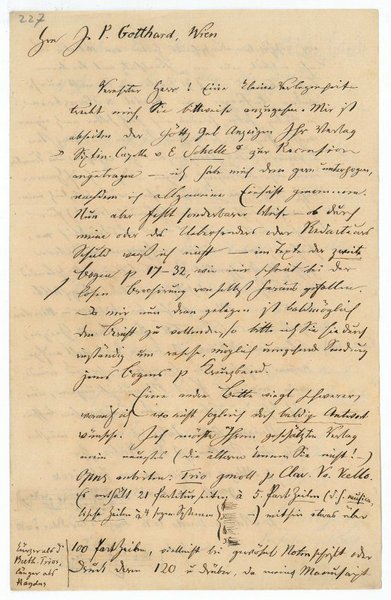 227
Hrn J. P. Gotthard, Wien
Verehrter Herr! Eine kleine Verlegenheit
treibt mich, Sie bittweise anzugehn. Mir ist
abseiten der Götting. Gel. Anzeigen Ihr Verlag
Sixtin. Capelle v E Schelle zur Recension
angetragen – ich habe mich dem gern unterzogen,
nachdem ich allgemeine Einsicht genommen.
Nun aber fehlt sonderbarer Weise – ob durch
meine oder des Uebersenders oder Redacteurs
Schuld weiß ich nicht – im Texte der zweite
Bogen p 17–32, wie mir scheint bei der
losen Brochirung von selbst herausgefallen.
Da mir nun dran gelegen ist baldmöglich
den Bericht zu vollenden, so bitte ich Sie hiedurch
inständig um rasche, möglich umgehende Sendung
jenes Bogens p Kreuzband.
Eine andre Bitte wiegt schwerer,
worauf ich wo nicht sogleich doch baldige Antwort
wünsche: Ich möchte Ihrem geschätzten Verlag
mein neustes (die ältern kennen Sie nicht!–)
Opus anbieten: Trio gmoll p Clav. Vo. Vcello.
Es enthält 21 Partiturseiten à 5 Partzeilen (d.h.
à 4 Systemen –) mithin etwas über
100 Partzeilen, vielleicht bei gewöhnl. Notenschrift oder
Druck deren 120 u drüber, da meine Manuscript
länger als d
Beeth. Trios,
länger als
Haydns